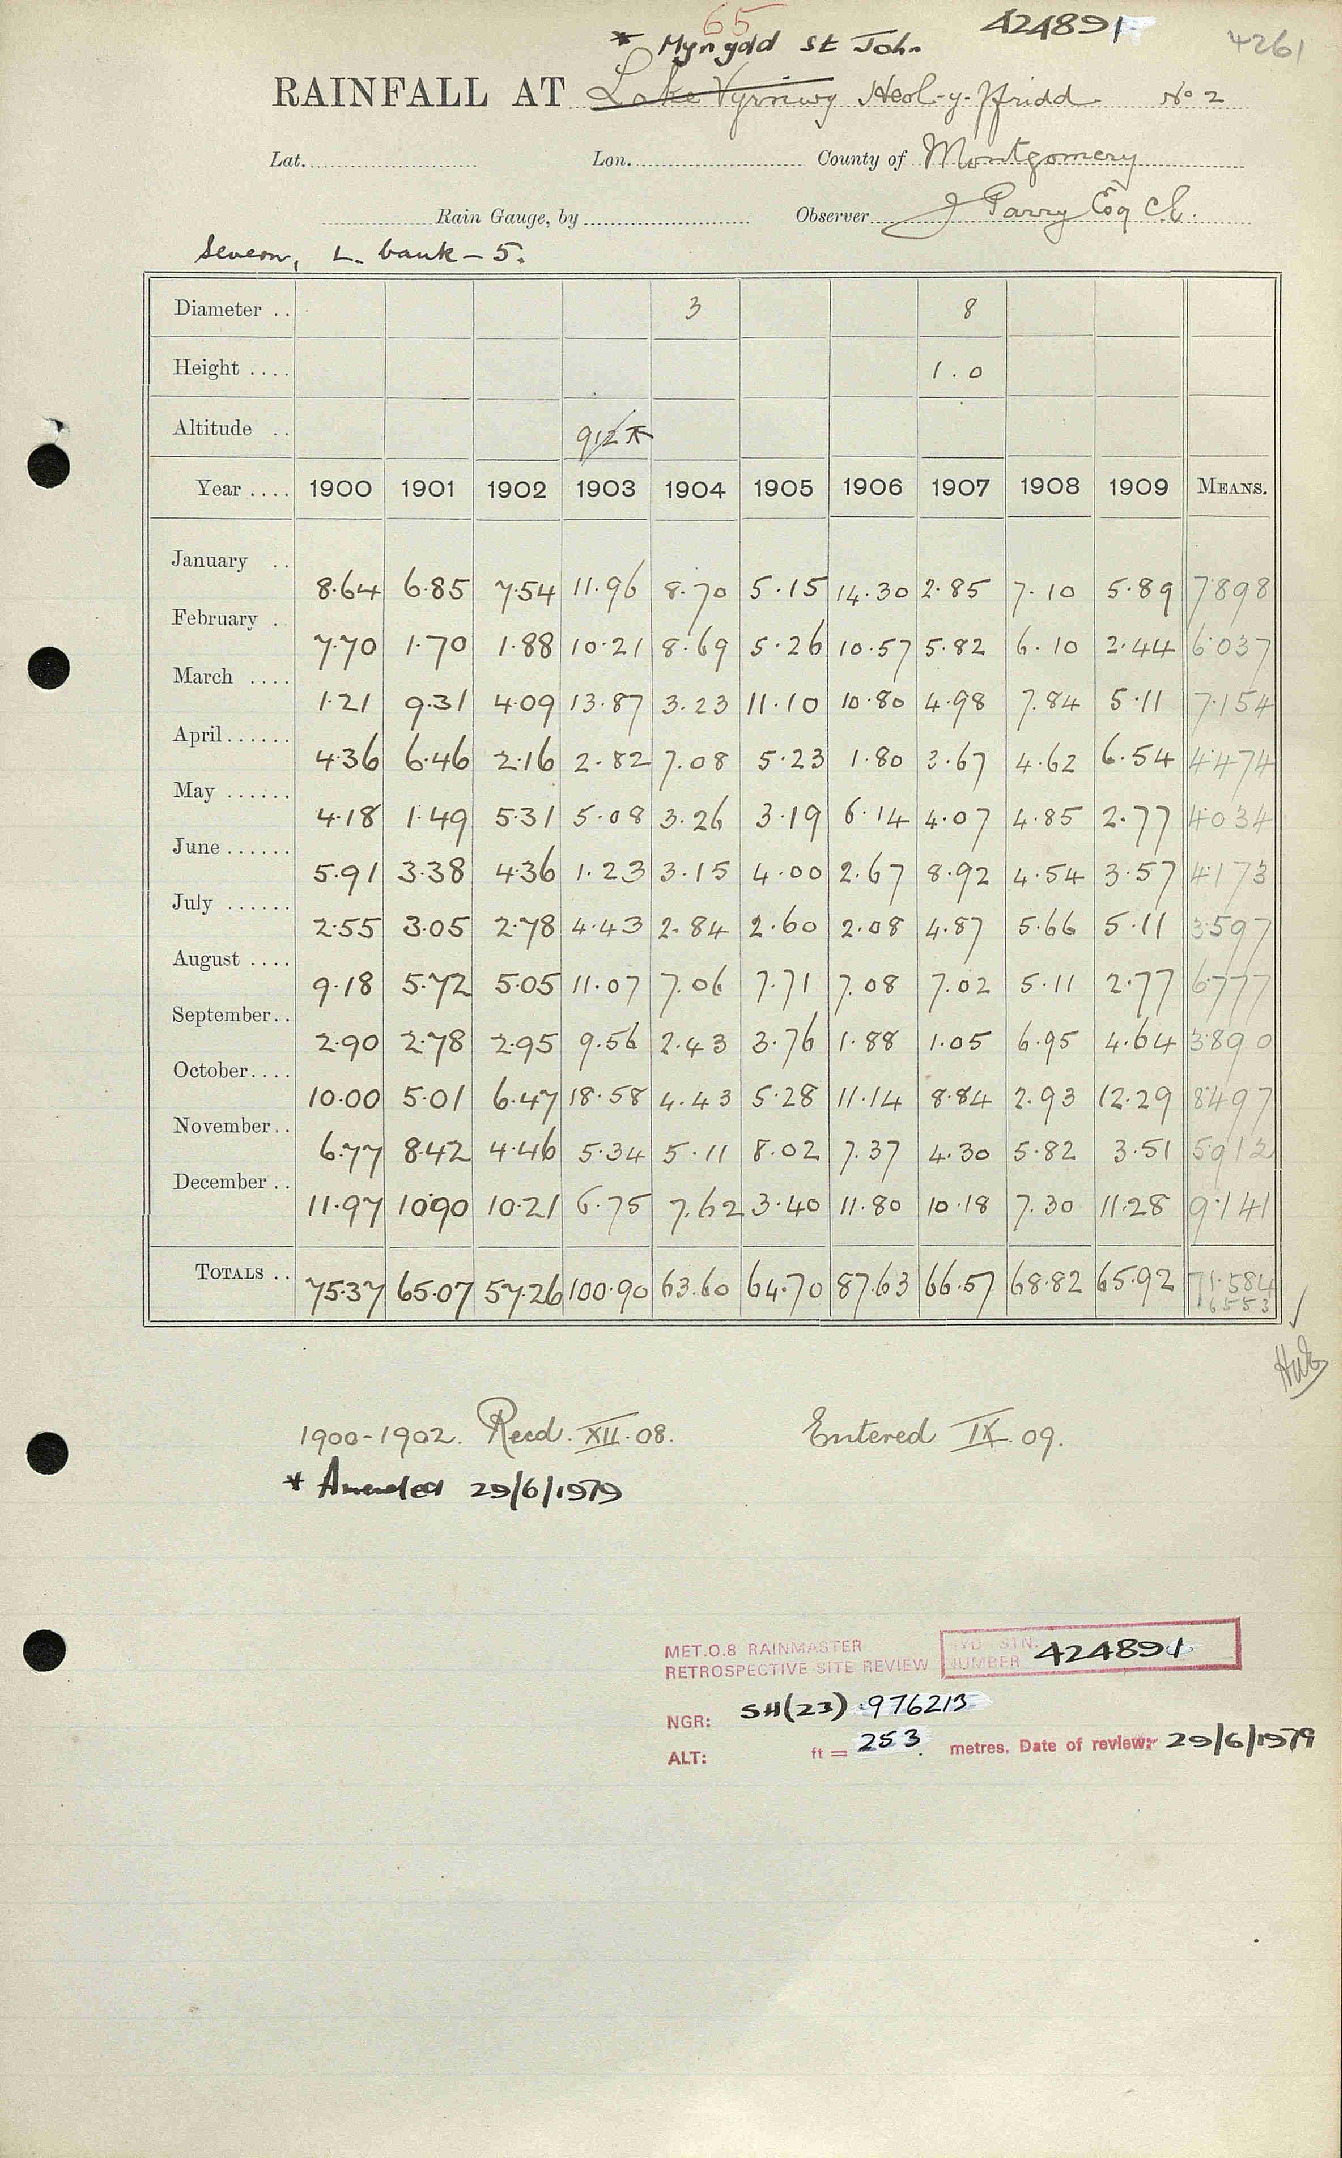 65
424891
4261
* Mynydd St John
RAINFALL AT Lake Vyrnwy Heol-y-ffridd No 2
Lat. Lon. County of Montgomery
Rain Gauge, by Observer J Parry Esq CE.
Severn, L. bank - 5.
Diameter .. 3 8
Height .... 1.0
Altitude .. 912 *
Year .... 1900 1901 1902 1903 1904 1905 1906 1907 1908 1909 MEANS.
January .. 8.64 6.85 7.54 11.96 8.70 5.15 14.30 2.85 7.10 5.89 7898
February . 7.70 1.70 1.88 10.21 8.69 5.26 10.57 5.82 6.10 2.44 6.037
March .... 1.21 9.31 4.09 13.87 3.23 11.10 10.80 4.98 7.84 5.11 7.154
April...... 4.36 6.46 2.16 2.82 7.08 5.23 1.80 3.67 4.62 6.54 4.474
May ...... 4.18 1.49 5.31 5.08 3.26 3.19 6.14 4.07 4.85 2.77 4034
June...... 5.91 3.38 4.36 1.23 3.15 4.00 2.67 8.92 4.54 3.57 4173
July ...... 2.55 3.05 2.78 4.43 2.84 2.60 2.08 4.87 5.66 5.11 3.597
August .... 9.18 5.72 5.05 11.07 7.06 7.71 7.08 7.02 5.11 2.77 6777
September.. 2.90 2.78 2.95 9.56 2.43 3.76 1.88 1.05 6.95 4.64 3890
October.... 10.00 5.01 6.47 18.58 4.43 5.28 11.14 8.84 2.93 12.29 8497
November.. 6.77 8.42 4.46 5.34 5.11 8.02 7.37 4.30 5.82 3.51 5912
December .. 11.97 10.90 10.21 6.75 7.62 3.40 11.80 10.18 7.30 11.28 9.141
TOTALS .. 75.37 65.07 57.26 100.90 63.60 64.70 87.63 66.57 68.82 65.92 71.584
6553
1900-1902. Recd. XII.08. Entered IX.09.
* Amended 29/6/1979
MET.O.8 RAINMASTER
RETROSPECTIVE SITE REVIEW
HYD STN.
NUMBER 424891
NGR: SH(23) 976213
ALT: ft = 253 metres. Date of review: 29/6/1979